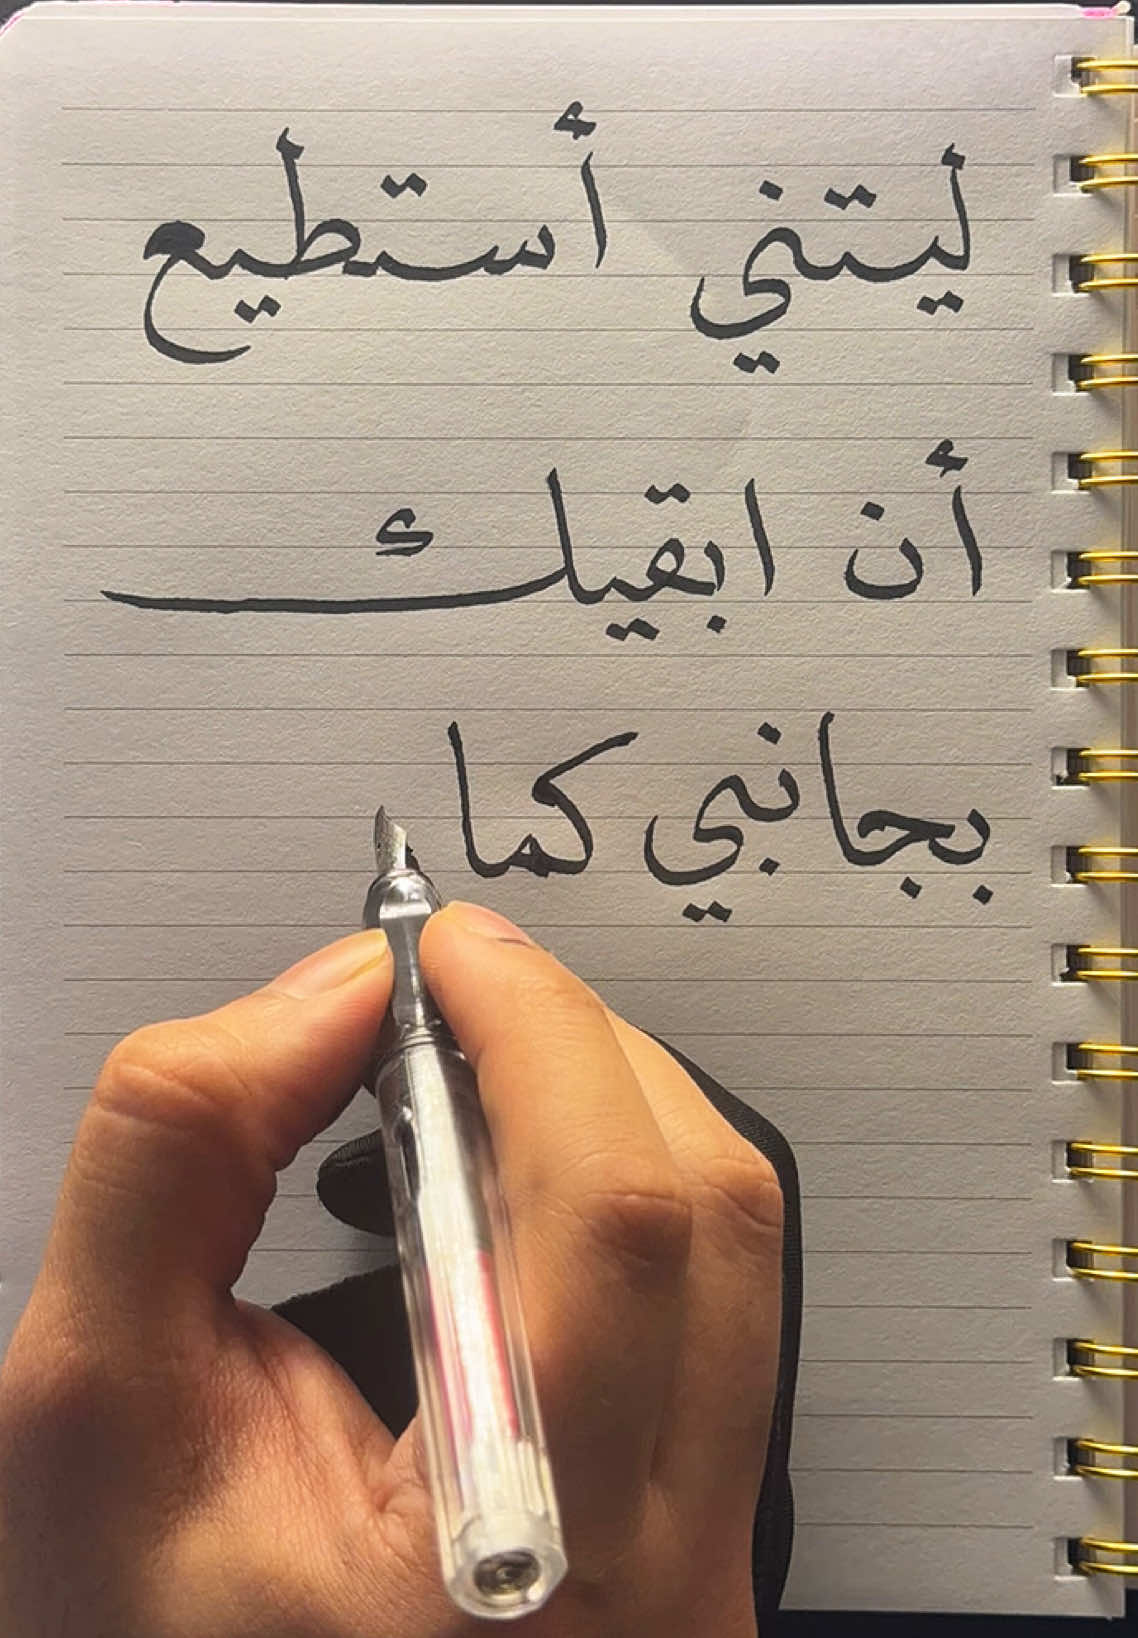 ليتني أستطيع
أن ابقيك
بجانبي كما